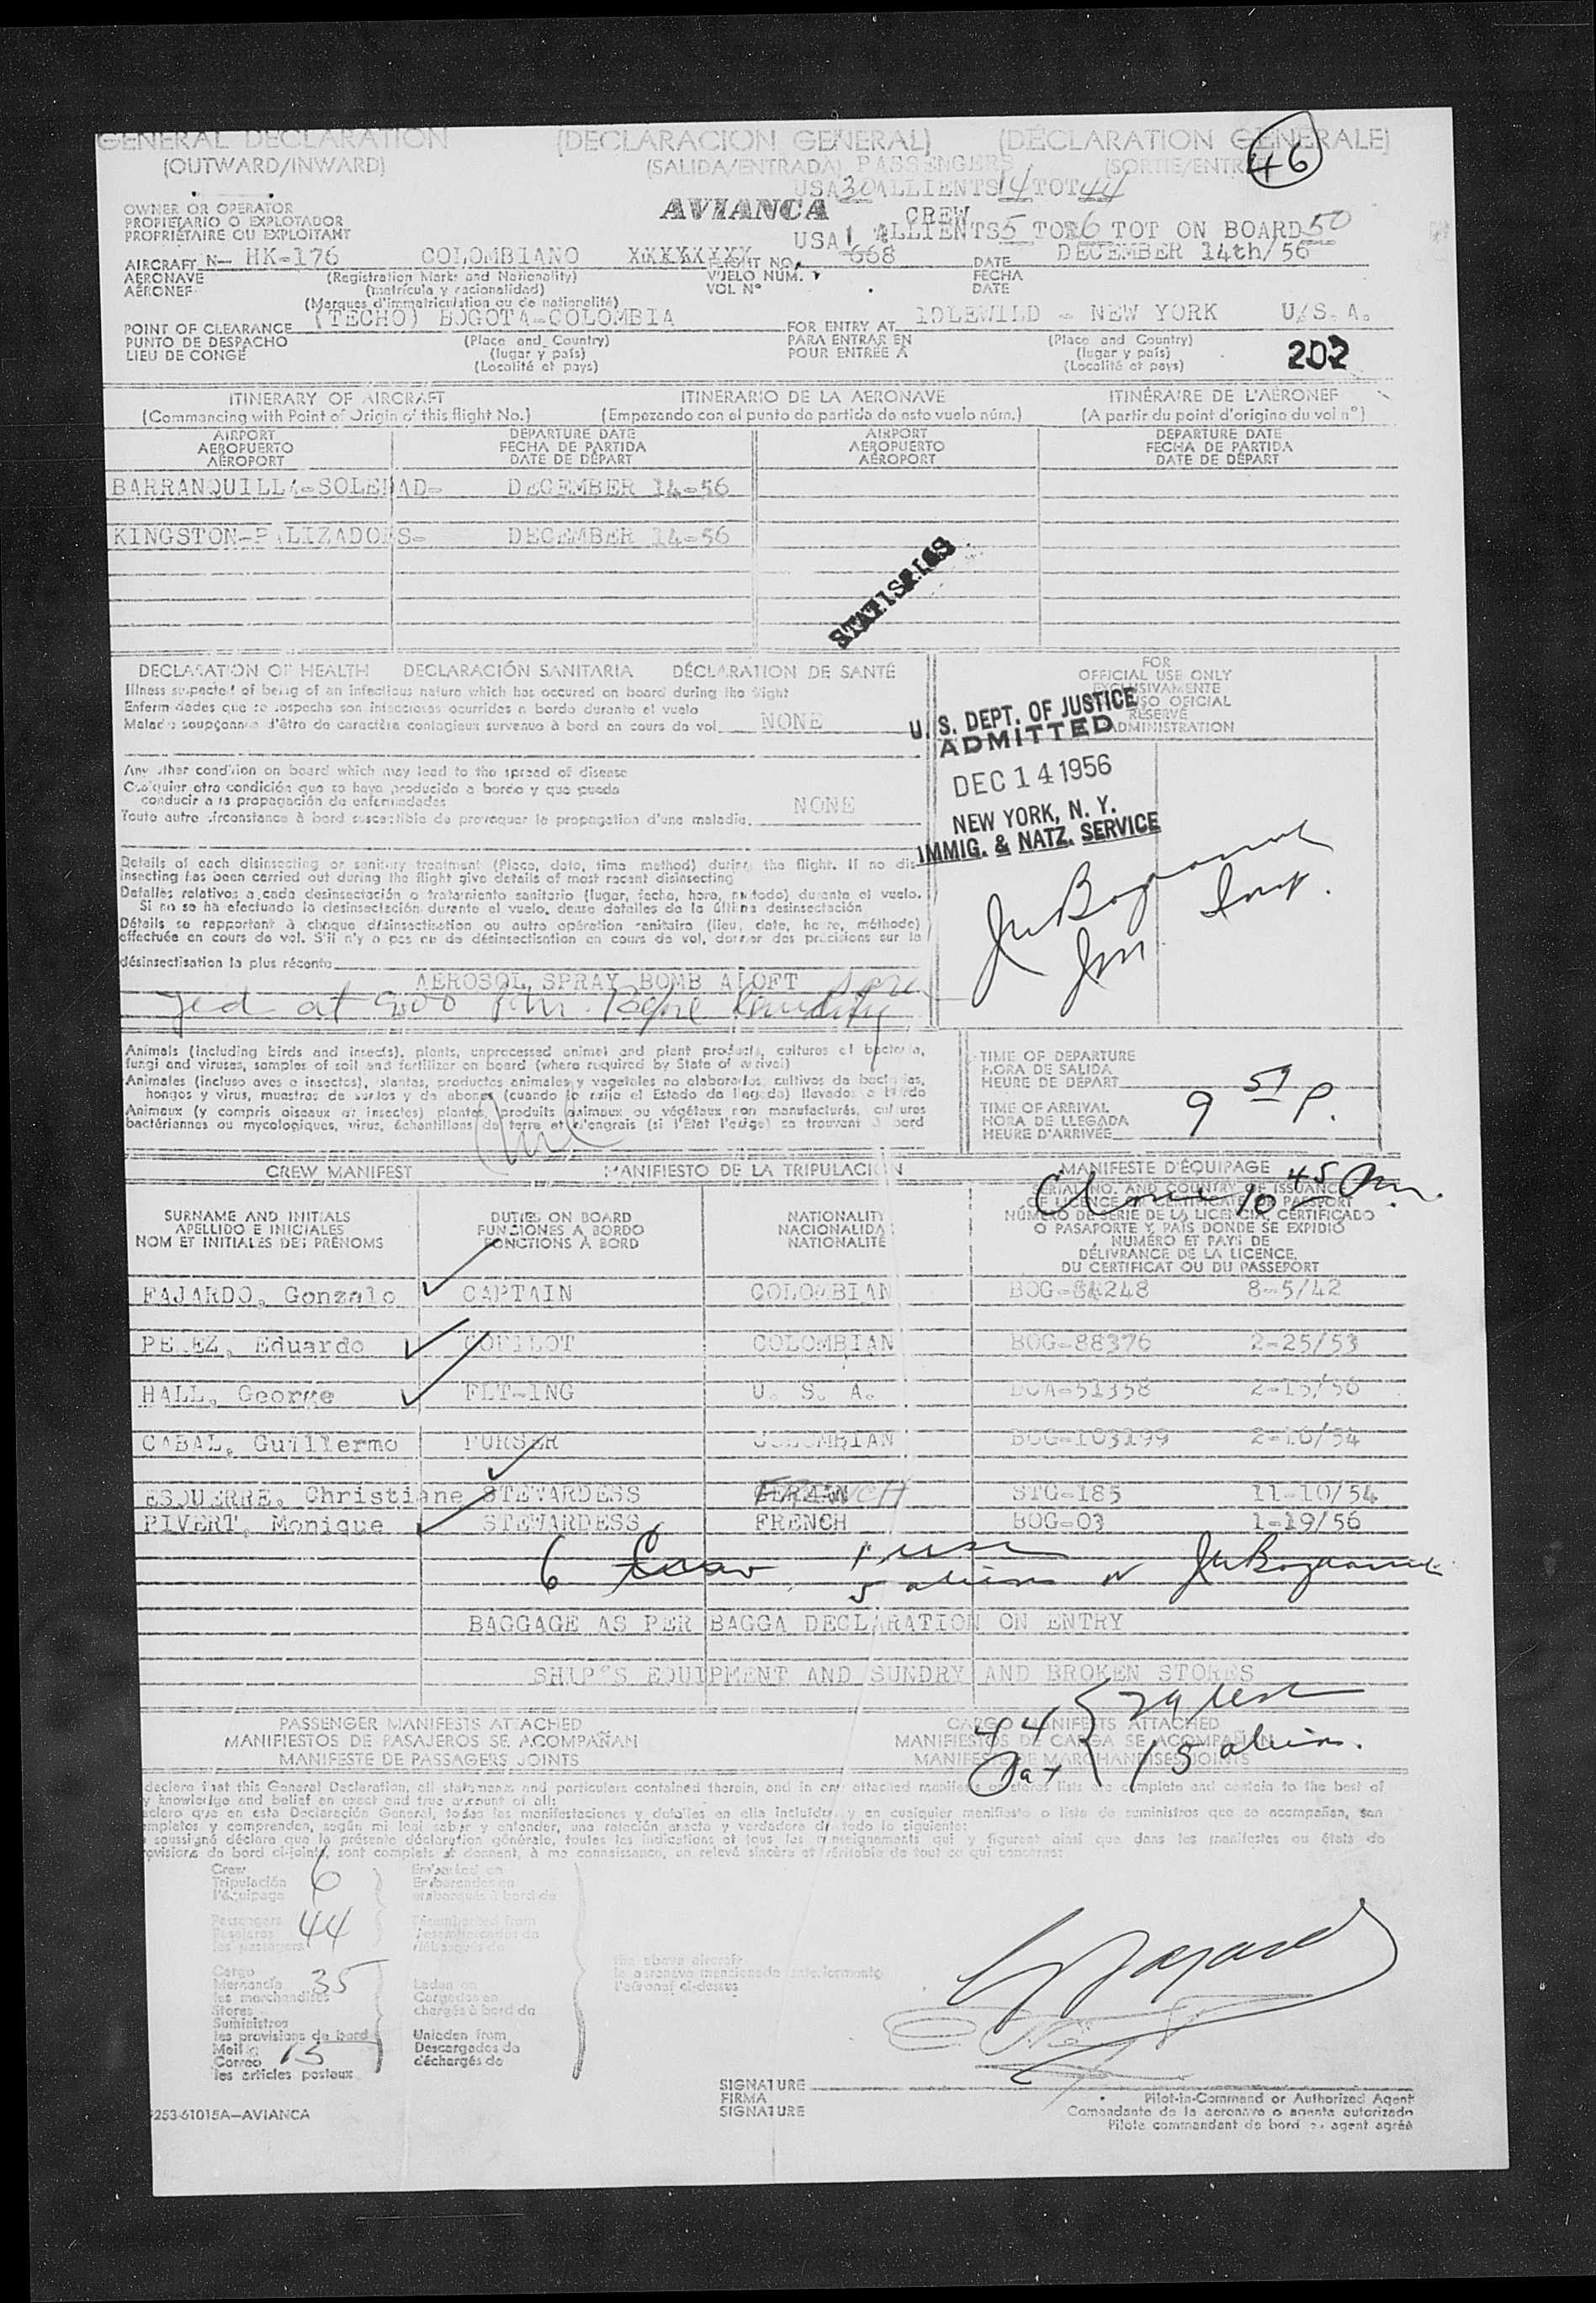 GENERAL DECLARATION (DECLARACION GENERAL) (DÉCLARATION GÉNÉRALE)
46
(OUTWARD/INWARD) (SALIDA/ENTRADA) PASSENGERS (SORTIE/ENTRÉE)
USA 30 ALLIENTS 14 TOT 44
OWNER OR OPERATOR
PROPIETARIO O EXPLOTADOR
PROPRIÉTAIRE OU EXPLOITANT
AVIANCA
CREW
USA 1 ALLIENTS 5 TOT 6 TOT ON BOARD 50
AIRCRAFT N- HK-176 COLOMBIANO XXXXXXXX FLIGHT NO. 668 DATE DECEMBER 14th/56
AERONAVE (Registration Marks and Nationality) VUELO NÚM. FECHA
AÉRONEF (matrícula y nacionalidad) VOL Nº DATE
(Marques d'immatriculation ou de nationalité)
POINT OF CLEARANCE (TECHO) BOGOTA-COLOMBIA FOR ENTRY AT IDLEWILD - NEW YORK U.S.A.
PUNTO DE DESPACHO (Place and Country) PARA ENTRAR EN (Place and Country)
LIEU DE CONGÉ (lugar y país) POUR ENTRÉE À (lugar y país)
(Localité et pays) (Localité et pays)
202
ITINERARY OF AIRCRAFT ITINERARIO DE LA AERONAVE ITINÉRAIRE DE L'AÉRONEF
(Commencing with Point of Origin of this flight No.) (Empezando con el punto de partida de este vuelo núm.) (A partir du point d'origine du vol nº)
AIRPORT DEPARTURE DATE AIRPORT DEPARTURE DATE
AEROPUERTO FECHA DE PARTIDA AEROPUERTO FECHA DE PARTIDA
AÉROPORT DATE DE DÉPART AÉROPORT DATE DE DÉPART
BARRANQUILLA-SOLEDAD- DECEMBER 14-56
KINGSTON-PALIZADOES- DECEMBER 14-56
STATISTICS
DECLARATION OF HEALTH DECLARACIÓN SANITARIA DÉCLARATION DE SANTÉ
Illness suspected of being of an infectious nature which has occured on board during the flight
Enfermedades que se sospecha son infecciosas ocurridas a bordo durante el vuelo
Maladie soupçonnée d'être de caractère contagieux survenue à bord en cours de vol NONE
FOR
OFFICIAL USE ONLY
EXCLUSIVAMENTE
USO OFICIAL
RÉSERVÉ
ADMINISTRATION
U. S. DEPT. OF JUSTICE
ADMITTED
DEC 14 1956
NEW YORK, N. Y.
IMMIG. & NATZ. SERVICE
Any other condition on board which may lead to the spread of disease
Cualquier otra condición que se haya producido a bordo y que pueda
conducir a la propagación de enfermedades
Toute autre circonstance à bord susceptible de provoquer la propagation d'une maladie. NONE
Details of each disinsecting or sanitary treatment (Place, date, time method) during the flight. If no dis-
insecting has been carried out during the flight give details of most recent disinsecting
Detalles relativos a cada desinsectación o tratamiento sanitario (lugar, fecha, hora, método) durante el vuelo.
Si no se ha efectuado la desinsectación durante el vuelo, dense detalles de la última desinsectación
Détails se rapportant à chaque désinsectisation ou autre opération sanitaire (lieu, date, heure, méthode)
effectuée en cours de vol. S'il n'y a pas eu de désinsectisation en cours de vol, donner des précisions sur la
désinsectisation la plus récente
AEROSOL SPRAY BOMB ALOFT
Animals (including birds and insects), plants, unprocessed animal and plant products, cultures of bacteria,
fungi and viruses, samples of soil and fertilizer on board (where required by State of arrival)
Animales (incluso aves e insectos), plantas, productos animales y vegetales no elaborados, cultivos de bacterias,
hongos y virus, muestras de suelos y de abonos (cuando lo exija el Estado de llegada) llevados a bordo
Animaux (y compris oiseaux et insectes) plantes, produits animaux ou végétaux non manufacturés, cultures
bactériennes ou mycologiques, virus, échantillons de terre et d'engrais (si l'État l'exige) se trouvant à bord
TIME OF DEPARTURE
HORA DE SALIDA
HEURE DE DÉPART
TIME OF ARRIVAL
HORA DE LLEGADA
HEURE D'ARRIVÉE
9 59 P.
CREW MANIFEST MANIFIESTO DE LA TRIPULACIÓN MANIFESTE D'ÉQUIPAGE
10 45 Pm.
SURNAME AND INITIALS DUTIES ON BOARD NATIONALITY SERIAL NO. AND COUNTRY OF ISSUANCE
APELLIDO E INICIALES FUNCIONES A BORDO NACIONALIDAD OF LICENCE CERTIFICATE OR PASSPORT
NOM ET INITIALES DES PRÉNOMS FONCTIONS À BORD NATIONALITÉ NÚMERO DE SERIE DE LA LICENCIA, CERTIFICADO
O PASAPORTE Y PAÍS DONDE SE EXPIDIÓ
NUMÉRO ET PAYS DE
DÉLIVRANCE DE LA LICENCE,
DU CERTIFICAT OU DU PASSEPORT
FAJARDO, Gonzalo CAPTAIN COLOMBIAN BOG-84248 8-5/42
PEREZ, Eduardo COPILOT COLOMBIAN BOG-88376 2-25/53
HALL, George FLT-ING U. S. A. DCA-51358 2-15/56
CABAL, Guillermo PURSER COLOMBIAN BOG-103199 2-16/54
ESQUERRE, Christiane STEWARDESS GERMAN FRENCH STG-185 11-10/54
PIVERT, Monique STEWARDESS FRENCH BOG-03 1-19/56
6 Crew 1 usa
5 aliens
BAGGAGE AS PER BAGGA DECLARATION ON ENTRY
SHIP'S EQUIPMENT AND SUNDRY AND BROKEN STORES
PASSENGER MANIFESTS ATTACHED CARGO MANIFESTS ATTACHED
MANIFIESTOS DE PASAJEROS SE ACOMPAÑAN MANIFIESTOS DE CARGA SE ACOMPAÑAN
MANIFESTE DE PASSAGERS JOINTS MANIFESTE DE MARCHANDISES JOINTS
44 Pax { 29
15 aliens.
declare that this General Declaration, all statements and particulars contained therein, and in any attached manifests or stores lists are complete and contain to the best of
y knowledge and belief an exact and true account of all:
eclaro que en esta Declaración General, todas las manifestaciones y detalles en ella incluidos y en cualquier manifiesto o lista de suministros que se acompañan, son
mpletos y comprenden, según mi leal saber y entender, una relación exacta y verdadera de todo lo siguiente:
soussigné déclare que la présente déclaration générale, toutes les indications et tous les renseignements qui y figurent ainsi que dans les manifestes ou états de
ovisions de bord ci-joints, sont complets et donnent, à ma connaissance, un relevé sincère et véritable de tout ce qui concerne:
Crew
Tripulación 6
l'équipage
Embarked on
Embarcados en
embarqués à bord de
Passengers
Pasajeros 44
les passagers
Disembarked from
Desembarcados de
débarqués de
Cargo
Mercancía 35
les marchandises
Stores
Suministros
les provisions de bord
Mail
Correo 13
les articles postaux
Laden on
Cargados en
chargés à bord de
Unladen from
Descargados de
déchargés de
the above aircraft
la aeronave mencionada anteriormente
l'aéronef ci-dessus
SIGNATURE
FIRMA
SIGNATURE
Pilot-in-Command or Authorized Agent
Comandante de la aeronave o agente autorizado
Pilote commandant de bord ou agent agréé
253-61015A—AVIANCA